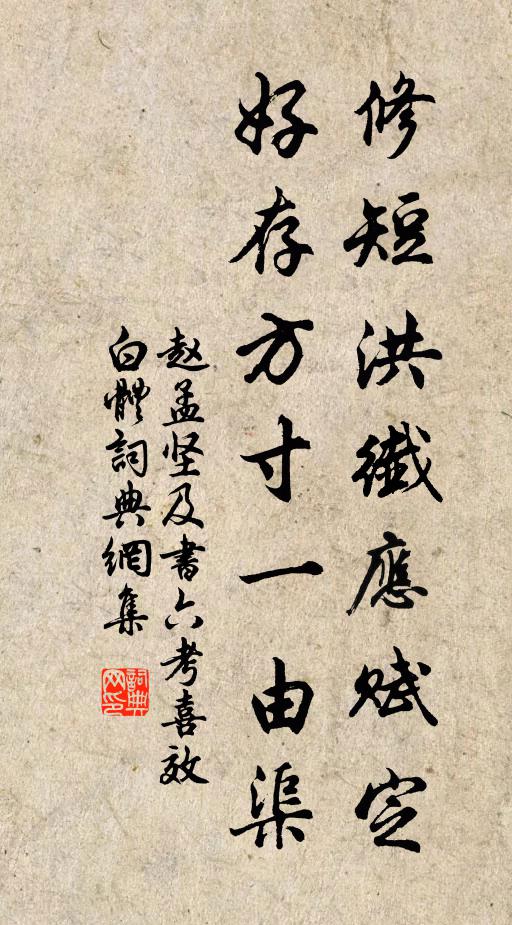 修短洪纖應赋定
好存方寸一由渠
赵孟坚及書六考喜效
白體詞典網集
詞典网印